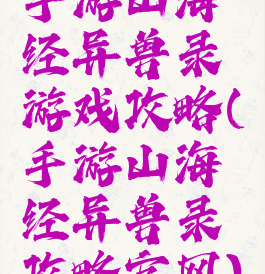 手游山海
经异兽录
游戏攻略(
手游山海
经异兽录
攻略官网)